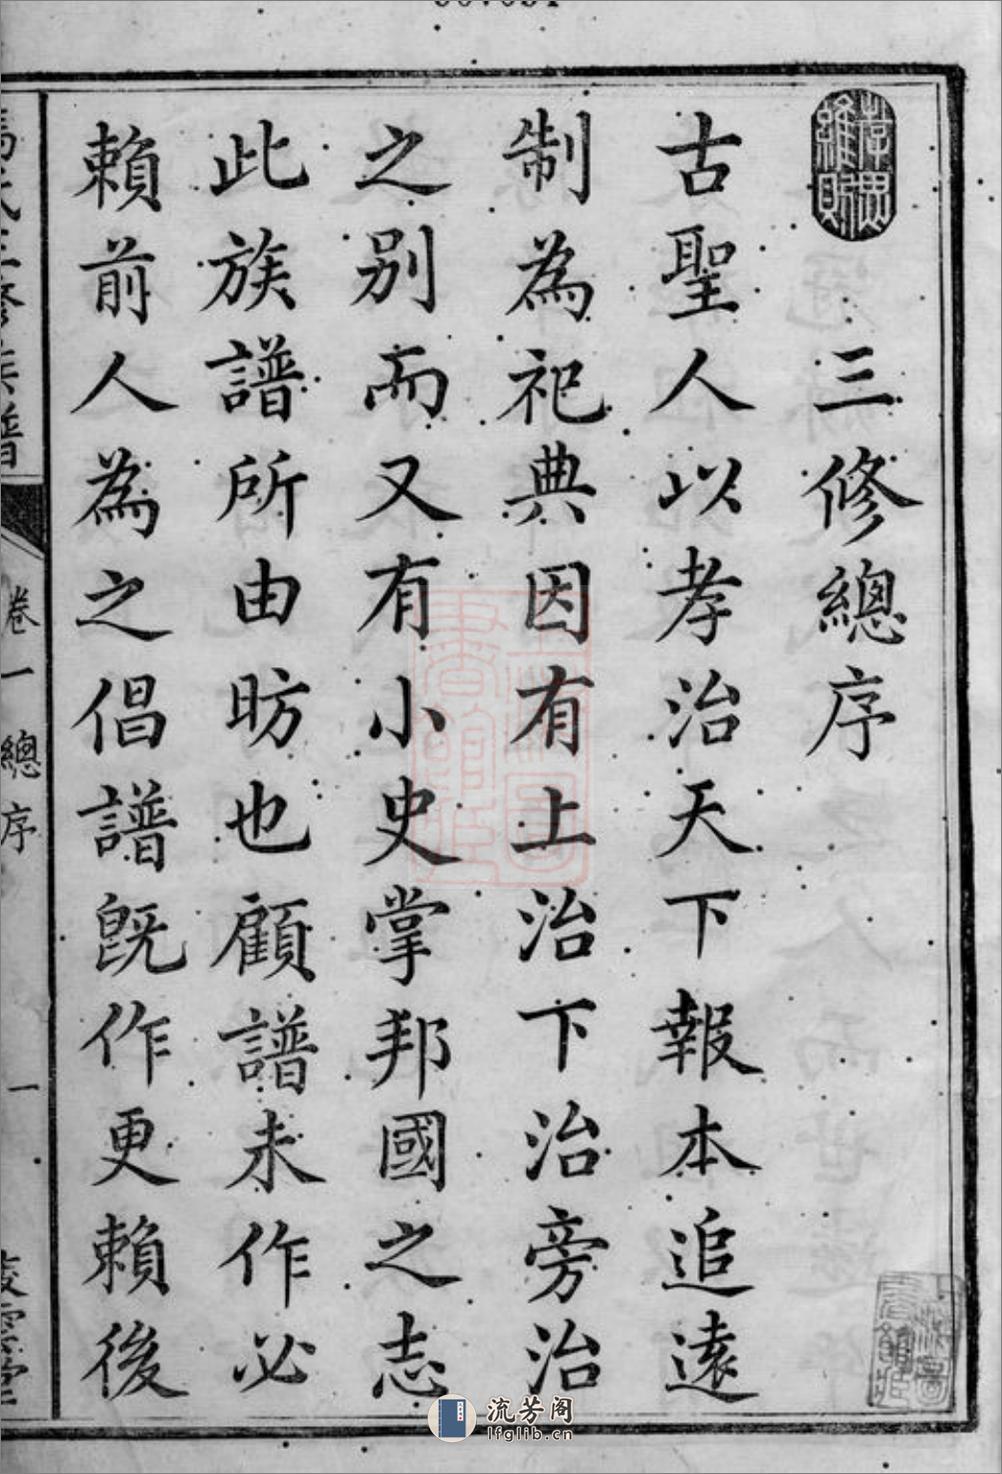 三修總序
古聖人以孝治天下報本追遠
制為祀典因有上治下治旁治
之別而又有小史掌邦國之志
此族譜所由昉也顧譜未作必
賴前人為之倡譜既作更賴後
卷一 總序
一
流芳阁
lfglib.cn